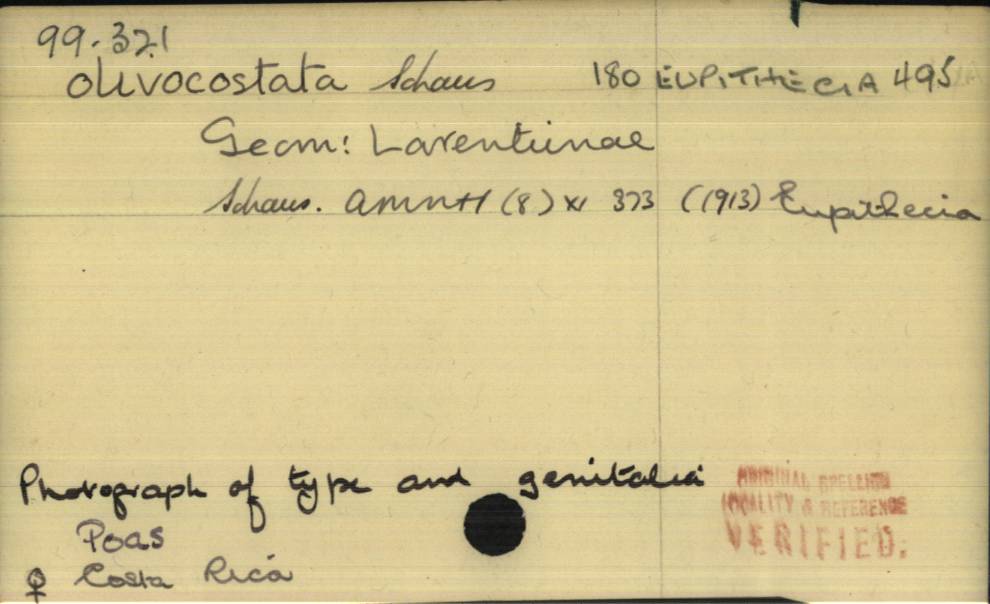 99.321
olivocostata Schaus 180 EUPITHECIA 495
Geom: Larentiinae
Schaus. AMNH (8) XI 373 (1913) Eupithecia
Photograph of type and genitalia
ORIGINAL SPELLING
LOCALITY & REFERENCE
VERIFIED.
Poas
♀ Costa Rica